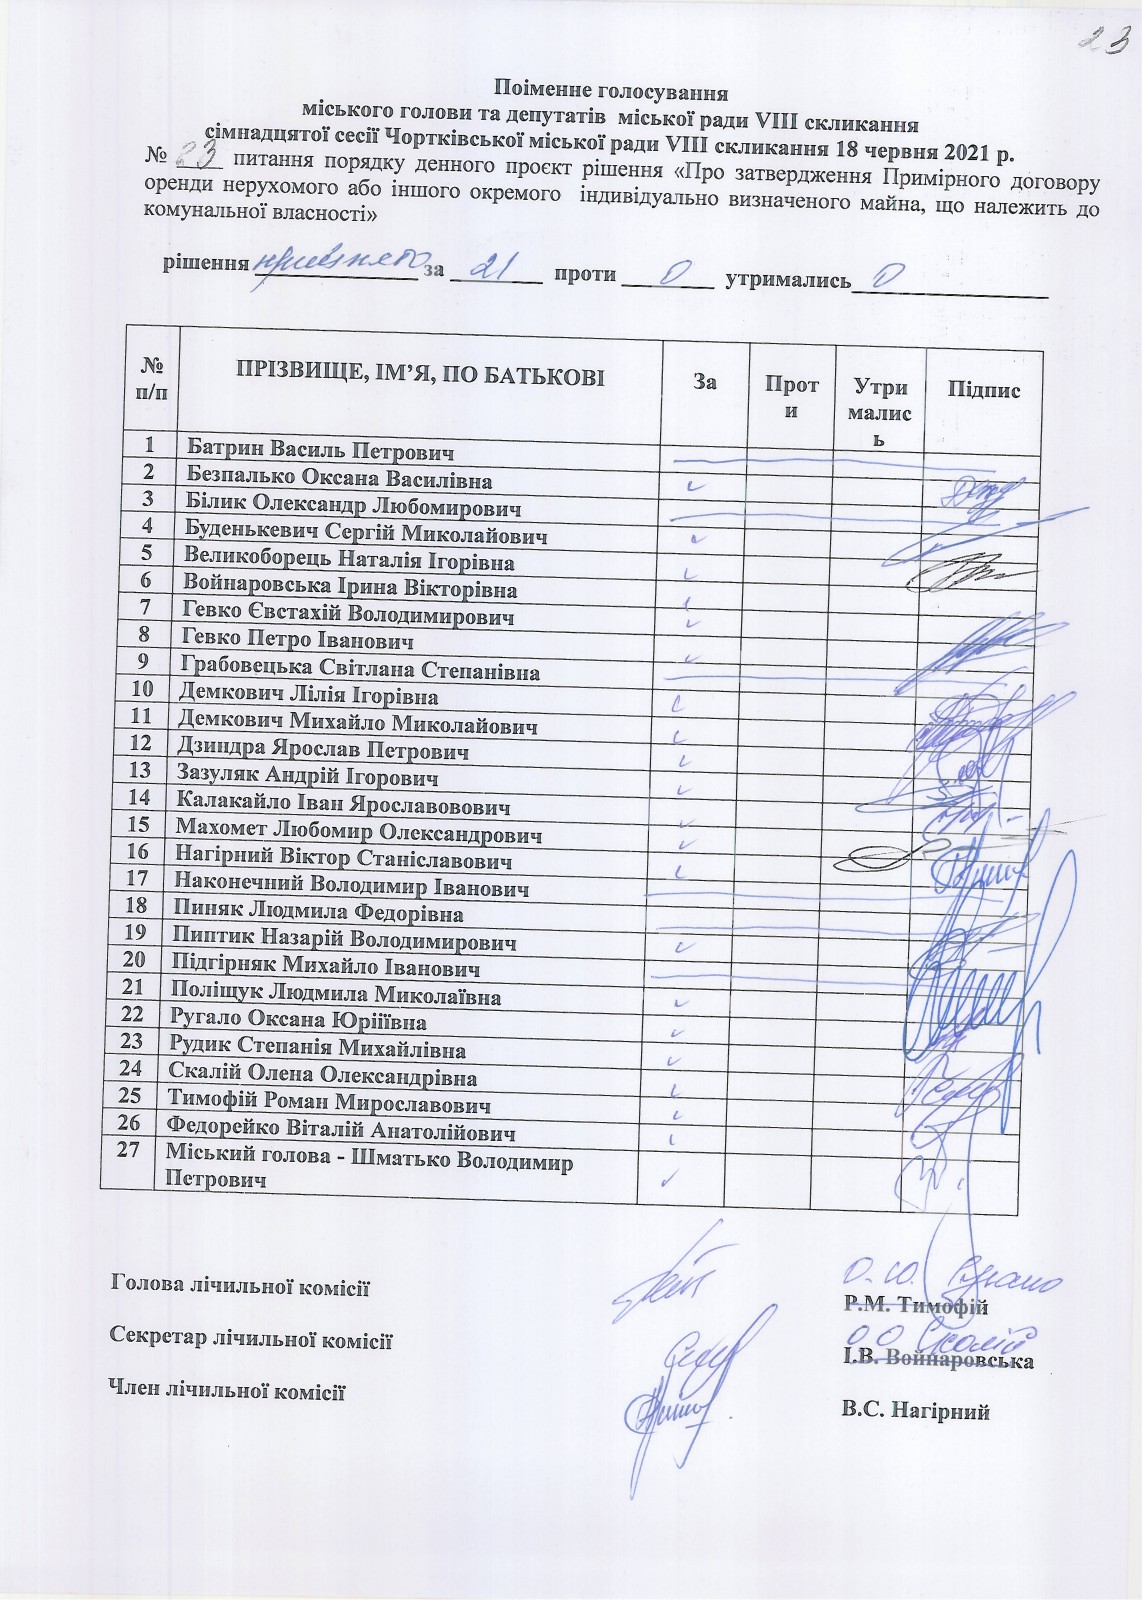 23
Поіменне голосування
міського голови та депутатів міської ради VIII скликання
сімнадцятої сесії Чортківської міської ради VIII скликання 18 червня 2021 р.
№ 23 питання порядку денного проєкт рішення «Про затвердження Примірного договору
оренди нерухомого або іншого окремого індивідуально визначеного майна, що належить до
комунальної власності»
рішення прийнято за 21 проти 0 утримались 0
№ п/п ПРІЗВИЩЕ, ІМ’Я, ПО БАТЬКОВІ За Прот и Утри малис ь Підпис
1 Батрин Василь Петрович
2 Безпалько Оксана Василівна
3 Білик Олександр Любомирович
4 Буденькевич Сергій Миколайович
5 Великоборець Наталія Ігорівна
6 Войнаровська Ірина Вікторівна
7 Гевко Євстахій Володимирович
8 Гевко Петро Іванович
9 Грабовецька Світлана Степанівна
10 Демкович Лілія Ігорівна
11 Демкович Михайло Миколайович
12 Дзиндра Ярослав Петрович
13 Зазуляк Андрій Ігорович
14 Калакайло Іван Ярославовович
15 Махомет Любомир Олександрович
16 Нагірний Віктор Станіславович
17 Наконечний Володимир Іванович
18 Пиняк Людмила Федорівна
19 Пиптик Назарій Володимирович
20 Підгірняк Михайло Іванович
21 Поліщук Людмила Миколаївна
22 Ругало Оксана Юріїївна
23 Рудик Степанія Михайлівна
24 Скалій Олена Олександрівна
25 Тимофій Роман Мирославович
26 Федорейко Віталій Анатолійович
27 Міський голова - Шматько Володимир
Петрович
О.Ю. Ругало
Голова лічильної комісії Р.М. Тимофій
О.О. Скалій
Секретар лічильної комісії І.В. Войнаровська
Член лічильної комісії В.С. Нагірний